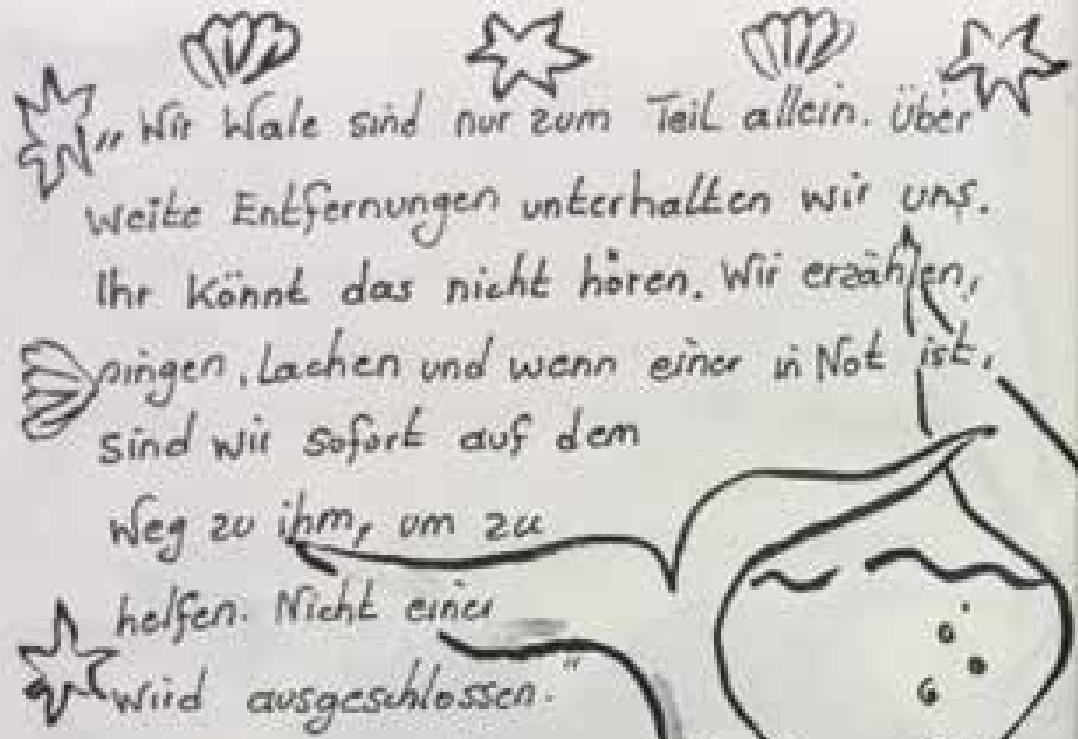 „Wir Wale sind nur zum Teil allein. Über
weite Entfernungen unterhalten wir uns.
Ihr könnt das nicht hören. Wir erzählen,
singen, lachen und wenn einer in Not ist,
sind wir sofort auf dem
Weg zu ihm, um zu
helfen. Nicht einer
wird ausgeschlossen."